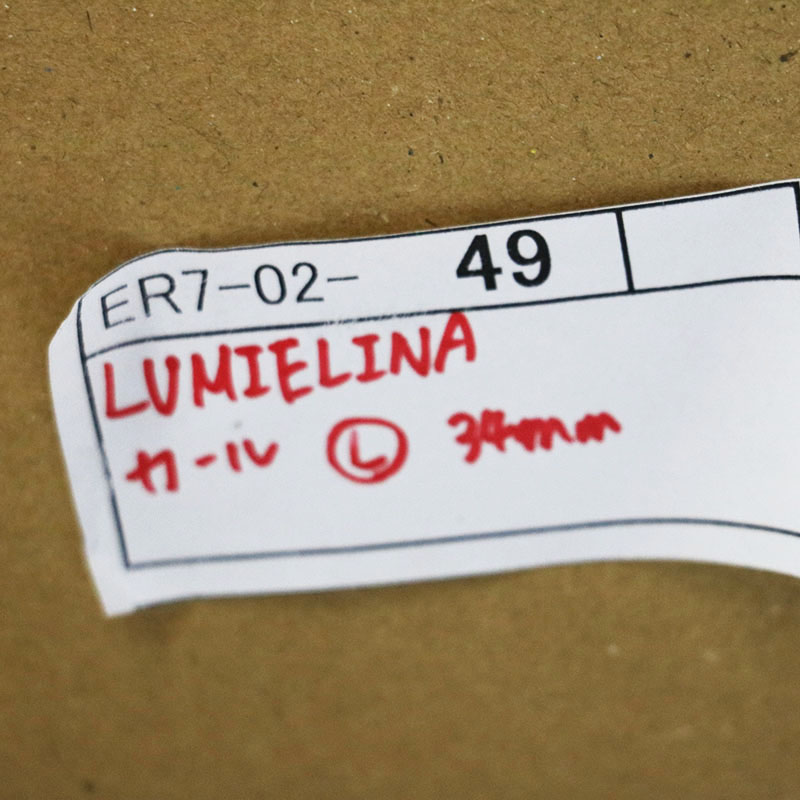 ER7-02- 49
LUMIELINA
カール Ⓛ 34mm